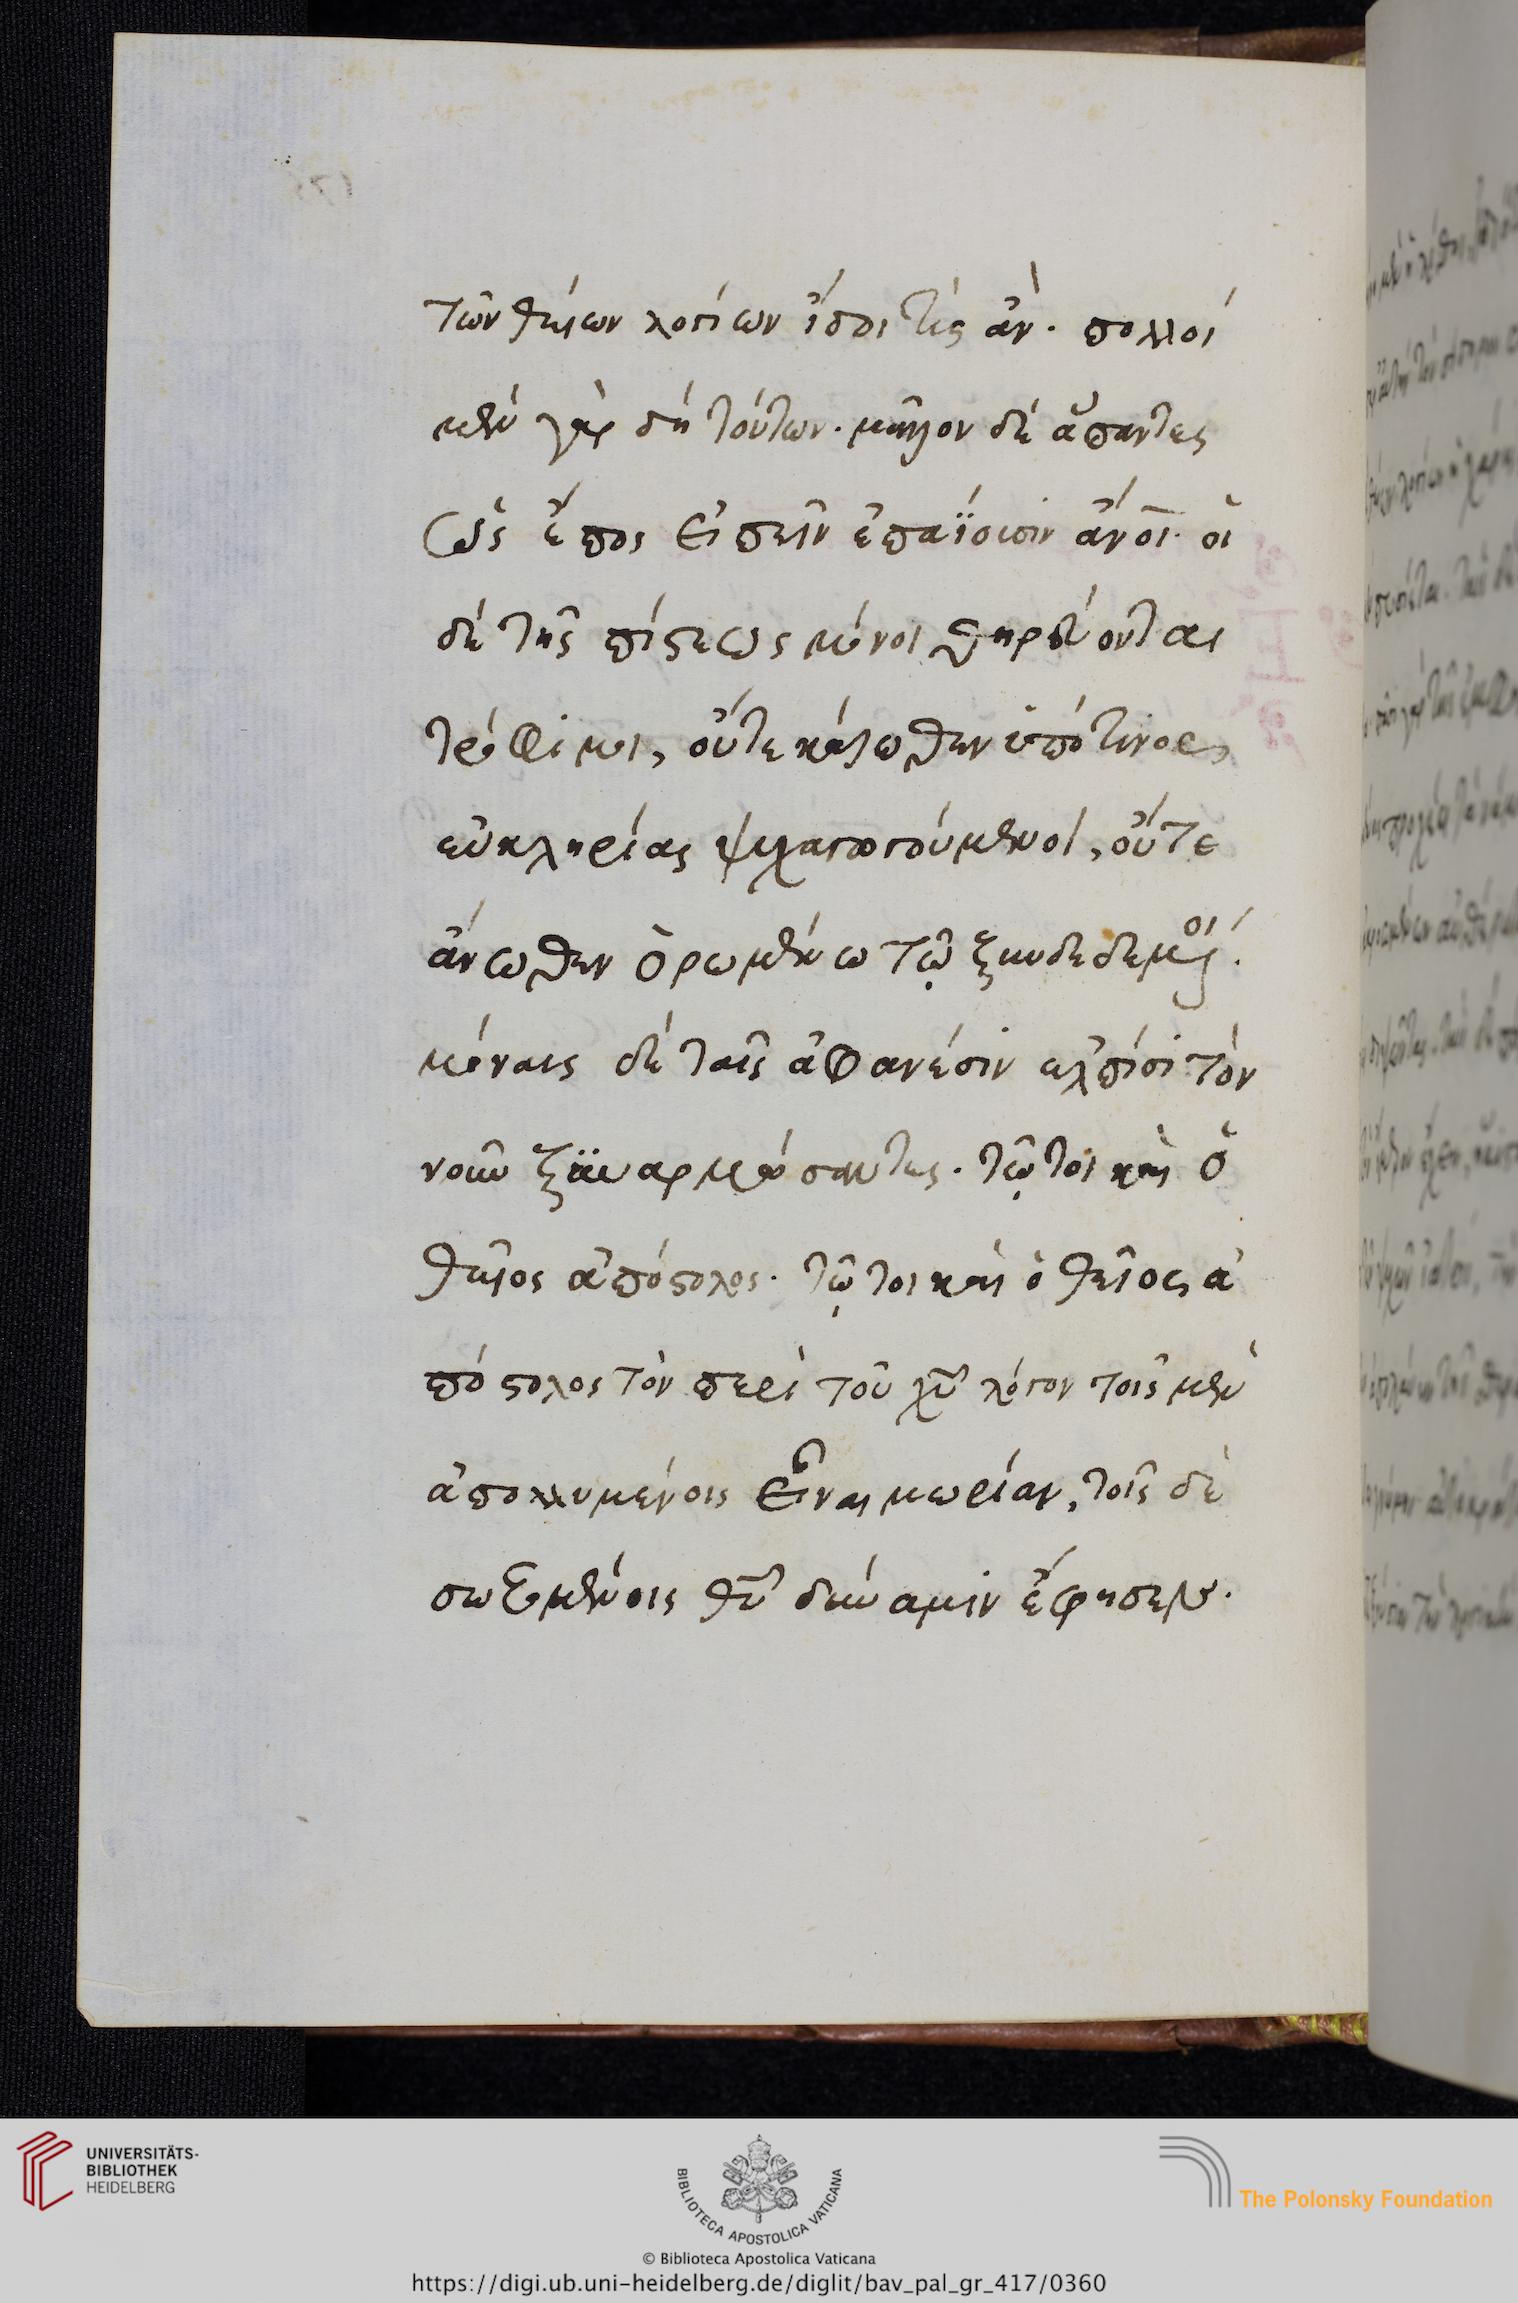 τῶν θείων λογίων ἴσοι τίς ἂν. πολλοὶ
μὲν γὰρ δὴ τούτων. μᾶλλον δὲ ἅπαντες
ὡς ἔπος εἰπεῖν ἐπαΐουσιν ἄνοι. οἱ
δὲ τῆς πίστεως μόνοι θηρεύονται
τρόφιμοι, οὔτε κάτωθεν ὑπό τινος
εὐκληρίας ψυχαγωγούμενοι, οὔτε
ἄνωθεν ὁρωμένω τῷ ξυνδεδεμένοι.
μόναις δὲ ταῖς ἀφανέσιν ἐλπίσι τὸν
νοῦν ξυναρμόσαντες. τῷ τοι καὶ ὁ
θεῖος ἀπόστολος. τῷ τοι καὶ ὁ θεῖος ἀ
πόστολος τὸν περὶ τοῦ χυ λόγον τοῖς μὲν
ἀπολλυμένοις εἶναι μωρίαν, τοῖς δὲ
σωζομένοις θυ δύναμιν ἔφησεν.
UNIVERSITÄTS-
BIBLIOTHEK
HEIDELBERG
BIBLIOTECA APOSTOLICA VATICANA
The Polonsky Foundation
© Biblioteca Apostolica Vaticana
https://digi.ub.uni-heidelberg.de/diglit/bav_pal_gr_417/0360